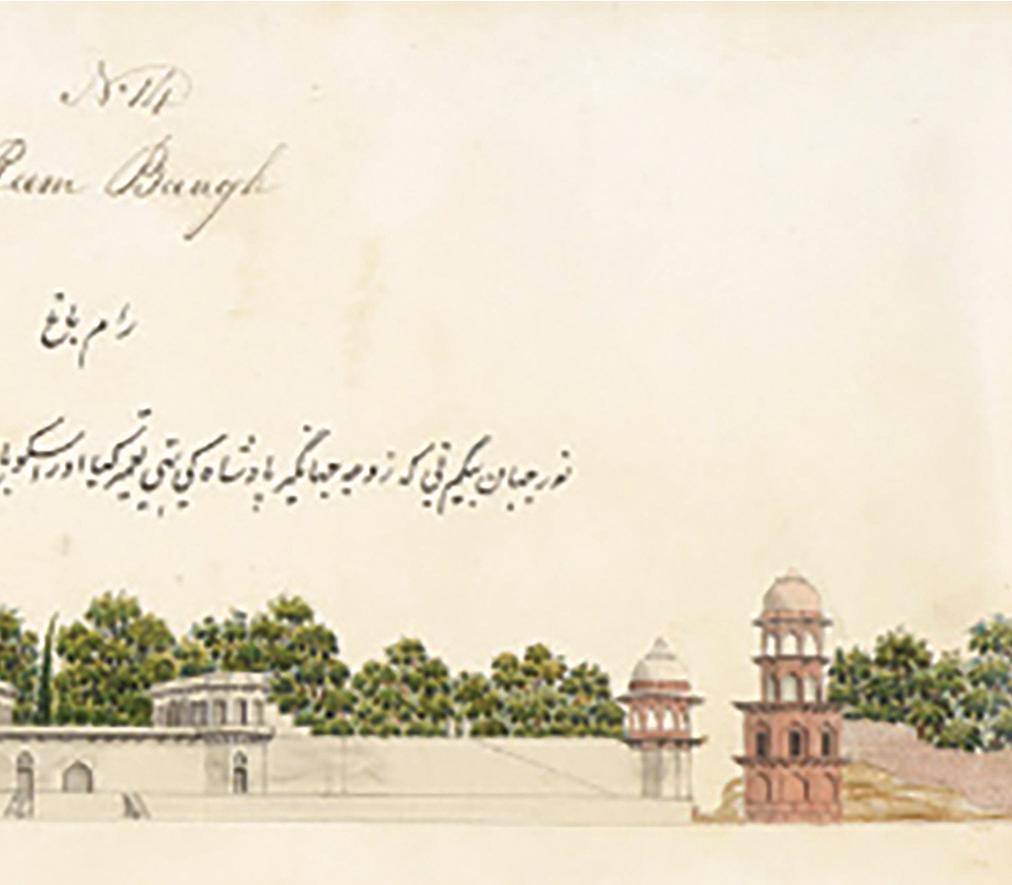 No. 14
Rum Baugh
رام باغ
نور جہان بیگم نی کہ زوجہ جہانگیر بادشاہ کی تہی تعمیر کیا اور اسکو